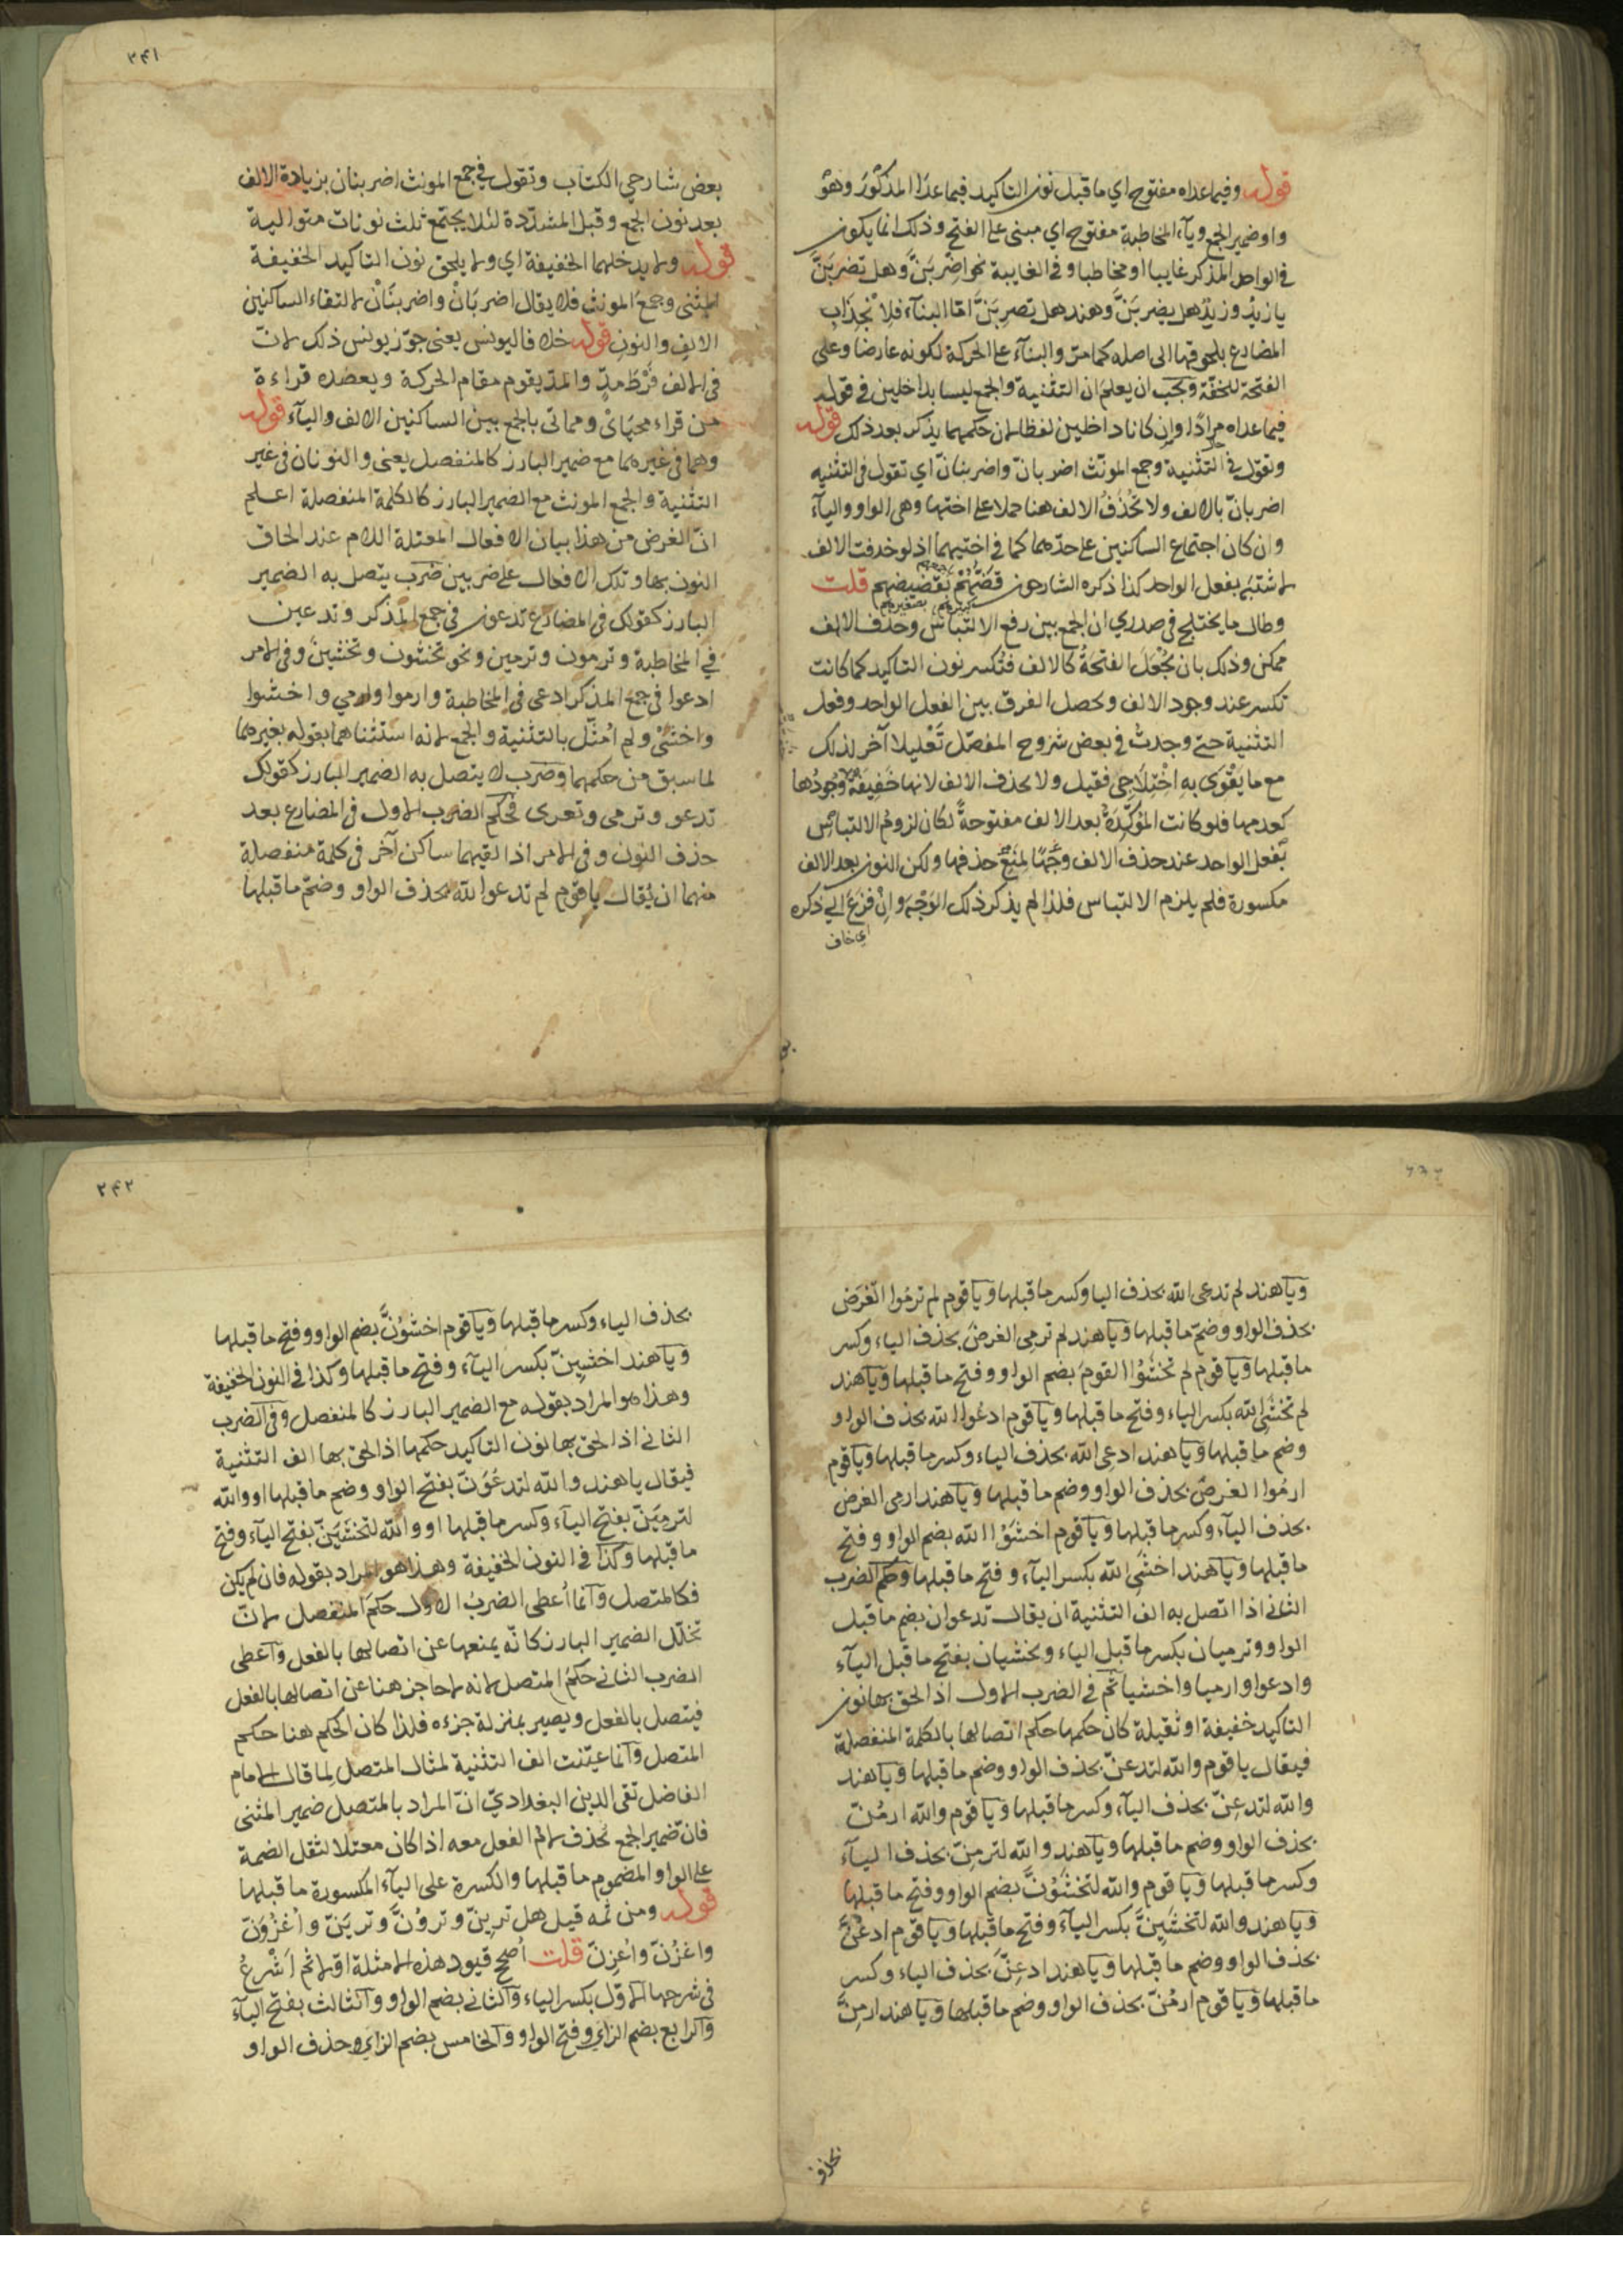 قوله وفيما عداه مفتوح اي ما قبل نون التاكيد فيما عدا المذكور وهو
واو ضمير الجمع ويآء المخاطبة مفتوح اي مبني على الفتح وذلك انما يكون
في الواحد المذكر غايبا او مخاطبا و في الغايبة نحو اضربَنَّ وهل تضربَنَّ
يا زيد وزيد هل يضربَنَّ وهند هل تضربَنَّ امّا البنآء فلانجذاب
المضارع بلحوقها الى اصله كما مرّ والبنآء على الحركة لكونه عارضا وعلى
الفتحة للخفّة ويجب ان يعلم ان التثنية والجمع ليسا بداخلين في قوله
فيما عداه مرادًا وان كانا داخلين لفظا لان حكمهما يذكر بعد ذلك قوله
وتقول في التثنية وجمع المونّث اضربانّ واضربنانّ اي تقول في التثنيه
اضربانّ بالالف ولا تُحذَفُ الالف هنا حملا على اختها وهي الواو واليآء
وان كان اجتماع الساكنين على حدّهما كما في اختيهما اذ لو حذفت الالف
لاشتبه بفعل الواحد كذا ذكره الشارحون قَضّهُمْ بقَضيضهم قلت
وطال ما يختلج في صدري ان الجمع بين رفع الالتباس وحذف الالف
ممكن وذلك بان تُجْعَلَ الفتحةُ كالالف فتُكسر نون التاكيد كما كانت
تكسر عند وجود الالف ويحصل الفرق بين الفعل الواحد وفعل
التثنية حتى وجدتُ في بعض شروح المفصّل تَعْليلا آخر لذلك
مع ما يَقْوَى بهِ اخْتِلَاجِي فقيل ولا يحذف الالف لانها خَفِيفَةٌ وُجُودُها
كعدمها فلو كانت المؤكِّدَةُ بعد الالف مفتوحةً لكان لزوم الالتباس
بفعل الواحد عند حذف الالف وَجْهًا لِمَنْعِ حذفها ولكن النون بعد الالف
مكسورة فلم يلزم الالتباس فلذا لم يذكر ذلك الوَجْهَ وانْ فَزِعَ الي ذكره
اي خاف
٢٤١
بعض شارحي الكتاب وتقول في جمع المونث اضربنان بزيادة الالف
بعد نون الجمع وقبل المشدّدة لئلا يجتمع ثلث نونات متوالية
قوله ولا يدخلهما الخفيفة اي ولا يلحق نون التاكيد الخفيفة
المثنى وجمع المونث فلا يقال اضربَانْ واضربنَانْ لالتقاء الساكنين
الالف والنون قوله خلافا ليونس يعنى جوّز يونس ذلك لانّ
في الالف فَرْطَ مدّ والمدّ يقوم مقام الحركة ويعضده قراءة
من قراء محيَايْ ومماتى بالجمع بين الساكنين الالف واليآء قوله
وهما في غيرهما مع ضمير البارز كالمنفصل يعنى والنونان في غير
التثنية والجمع المونث مع الضمير البارز كالكلمة المنفصلة اعلم
انّ الغرض من هذا بيان الافعال المعتلة اللام عند الحاق
النون بها وتلك الافعال على ضربين ضرب يتصل به الضمير
البارز كقولك في المضارع تدعون في جمع المذكر وتدعين
في المخاطبة وترمون وترمين ونحو تخشون وتخشين وفي الامر
ادعوا في جمع المذكر ادعى في المخاطبة وارموا وارمي واخشوا
واخشَيْ ولم اُمثّل بالتثنية والجمع لانه استثناهما بقوله بغيرهما
لما سبق من حكمهما وضرب لا يتصل به الضمير البارز كقولك
تدعو وترمى وتعرى فحكم الضرب الاول في المضارع بعد
حذف النون وفي الامر اذا لقيهما ساكن آخر في كلمة منفصلة
منهما ان يُقال يا قوم لم تدعوا الله بحذف الواو وضمّ ما قبلها
ويا هند لم تدعى الله بحذف اليا وكسر ما قبلها ويا قوم لم ترمُوا الغَرَض
بحذف الواو وضمّ ما قبلها ويا هند لم ترمي الغرضَ بحذف الياء وكسر
ما قبلها ويا قوم لم تخشَوُا القومَ بضم الواو وفتح ما قبلها ويا هند
لم تخشَيِ الله بكسر الياء وفتح ما قبلها ويا قوم ادعُوا الله بحذف الواو
وضم ما قبلها ويا هند ادعى الله بحذف الياء وكسر ما قبلها ويا قوم
ارمُوا الغرضَ بحذف الواو وضم ما قبلها ويا هند ارمى الغرض
بحذف اليآء وكسر ما قبلها ويا قوم اخشَوُا الله بضم الواو وفتح
ما قبلها ويا هند اخشَيِ الله بكسر اليآء وفتح ما قبلها وحكم الضرب
الثاني اذا اتصل به الف التثنية ان يقال تدعوان بضم ما قبل
الواو وترميان بكسر ما قبل الياء وتخشيان بفتح ما قبل اليآء
وادعوا وارميا واخشيا ثم في الضرب الاول اذا لحق بها نون
التاكيد خفيفة او ثقيلة كان حكمها حكم اتصالها بالكلمة المنفصلة
فيقال يا قوم والله لتدعنّ بحذف الواو وضم ما قبلها ويا هند
والله لتدعِنّ بحذف اليآء وكسر ما قبلها ويا قوم والله ارمُنّ
بحذف الواو وضم ما قبلها ويا هند والله لترمِنّ بحذف اليآء
وكسر ما قبلها ويا قوم والله لتخشَوُنَّ بضم الواو وفتح ما قبلها
ويا هند والله لتخشَيِنَّ بكسر اليآء وفتح ما قبلها ويا قوم ادعُنَّ
بحذف الواو وضم ما قبلها ويا هند ادعِنَّ بحذف الياء وكسر
ما قبلها ويا قوم ارمُنّ بحذف الواو وضم ما قبلها ويا هند ارمِنَّ
بحذف
٢٤٢
بحذف الياء وكسر ما قبلها ويا قوم اخشَوُنَّ بضم الواو وفتح ما قبلها
ويا هند اخشَيِنّ بكسر اليآء وفتح ما قبلها وكذا في النون الخفيفة
وهذا هو المراد بقوله مع الضمير البارز كالمنفصل وفي الضرب
الثاني اذا لحق بها نون التاكيد حكمها اذا لحق بها الف التثنية
فيقال يا هند والله لتدعُوَنّ بفتح الواو وضم ما قبلها او والله
لترميَنّ بفتح اليآء وكسر ما قبلها او والله لتخشَيَنّ بفتح اليآء وفتح
ما قبلها وكذا في النون الخفيفة وهذا هو المراد بقوله فان لم يكن
فكالمتصل وانّما اُعطى الضربُ الاول حكمَ المنفصل لانّ
تخلّل الضمير البارز كانّه يمنعها عن اتصالها بالفعل واعطى
الضرب الثاني حكمُ المتصل لانه لا حاجز هنا عن اتصالها بالفعل
فيتصل بالفعل ويصير بمنزلة جزءه فلذا كان الحكم هنا حكم
المتصل وانّما عيّنت الف التثنية لمثال المتصل لما قال الامام
الفاضل تقى الدين البغداديّ انّ المراد بالمتصل ضمير المثنى
فانّ ضمير الجمع تحذف لام الفعل معه اذا كان معتلا لثقل الضمة
على الواو المضموم ما قبلها والكسرة على اليآء المكسورة ما قبلها
قوله ومن ثمه قيل هل ترينّ وتروُنَّ وتريَنّ واُغزُوَنّ
واغزُنّ واُغزِنّ قلت اُصحّح قيود هذه الامثلة اوّلا ثم اَشْرعُ
في شرحها الاوّل بكسر الياء والثاني بضم الواو والثالث بفتح اليآء
والرابع بضم الزاي وفتح الواو والخامس بضم الزاي وحذف الواو